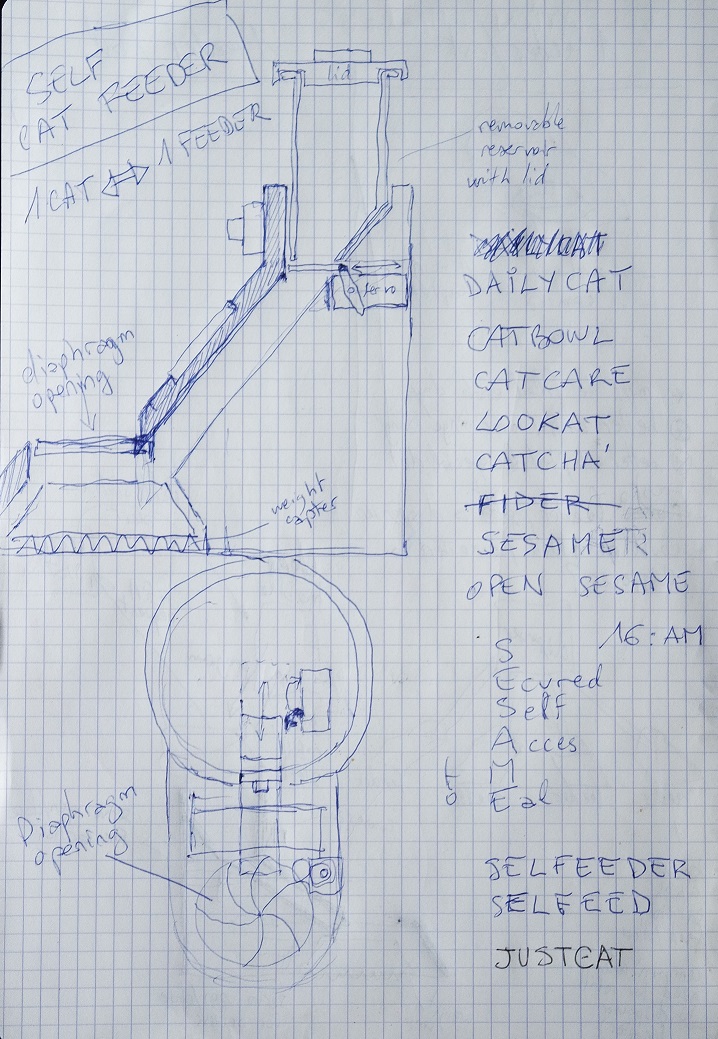 SELF
CAT FEEDER
1 CAT ⇔ 1 FEEDER
lid
removable
reservoir
with lid
servo
diaphragm
opening
weight
capter
DAILYCAT
CATBOWL
CATCARE
LOOKAT
CATCHA'
FIDER
SESAME
OPEN SESAME
16:AM
S
Ecured
Self
Acces
M
Eal
Diaphragm
opening
SELFEEDER
SELFEED
JUSTEAT